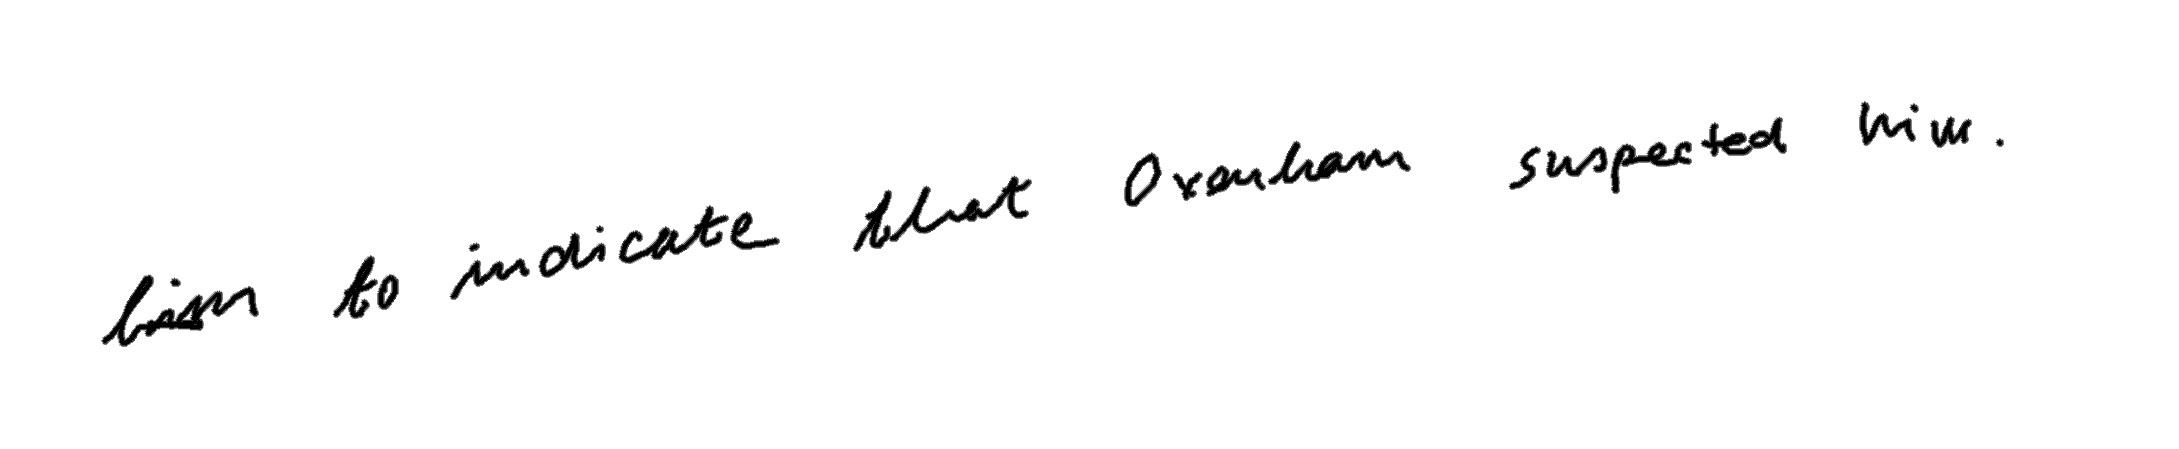 him to indicate that Oxenham suspected him.